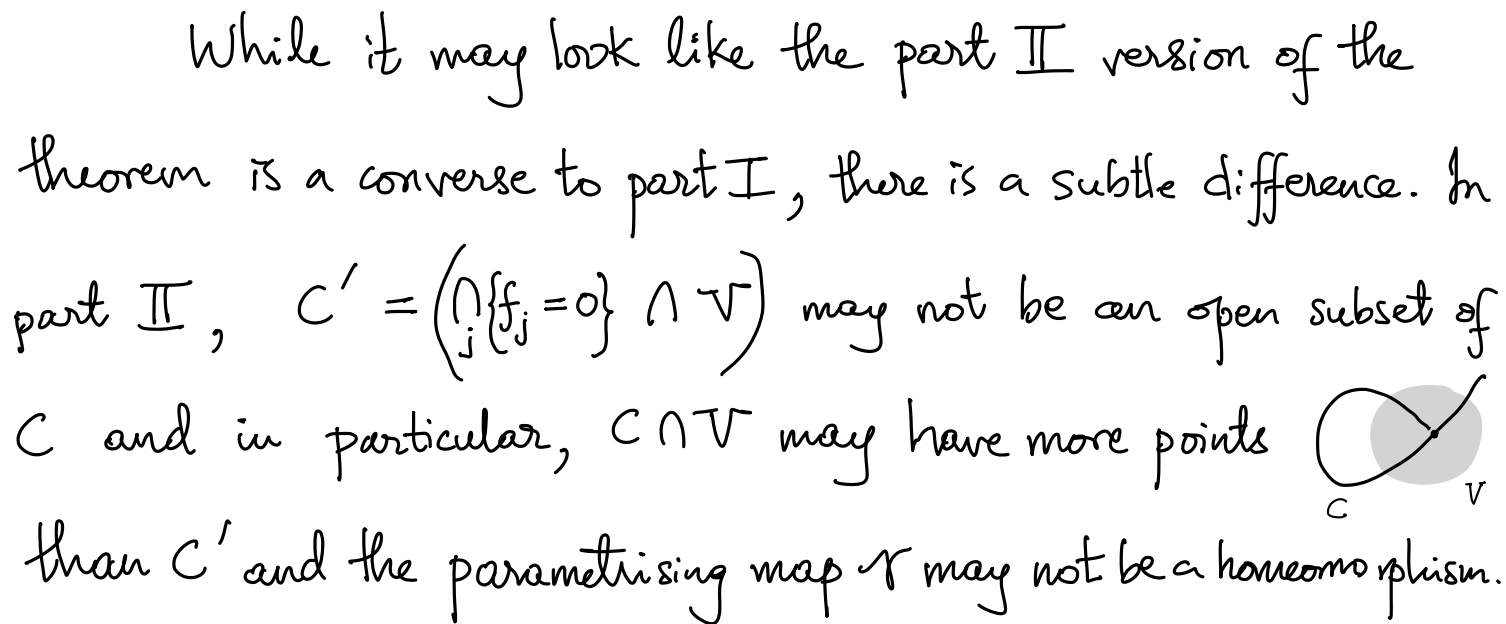 While it may look like the part II version of the
theorem is a converse to part I, there is a subtle difference. In
part II, C' = (⋂_j {f_j = 0} ∩ V) may not be an open subset of
C and in particular, C ∩ V may have more points
C V
than C' and the parametrising map γ may not be a homeomorphism.